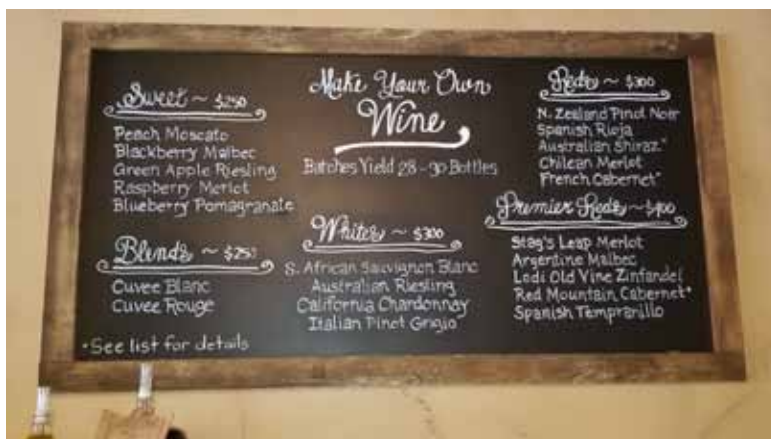 Sweet ~ $250
Peach Moscato
Blackberry Malbec
Green Apple Riesling
Raspberry Merlot
Blueberry Pomagranate
Blends ~ $250
Cuvee Blanc
Cuvee Rouge
*See list for details
Make Your Own
Wine
Batches Yield 28-30 Bottles
Whites ~ $300
S. African Sauvignon Blanc
Australian Riesling
California Chardonnay
Italian Pinot Grigio
Reds ~ $300
N. Zealand Pinot Noir
Spanish Rioja
Australian Shiraz*
Chilean Merlot
French Cabernet*
Premier Reds ~ $400
Stag's Leap Merlot
Argentine Malbec
Lodi Old Vine Zinfandel
Red Mountain Cabernet*
Spanish Tempranillo